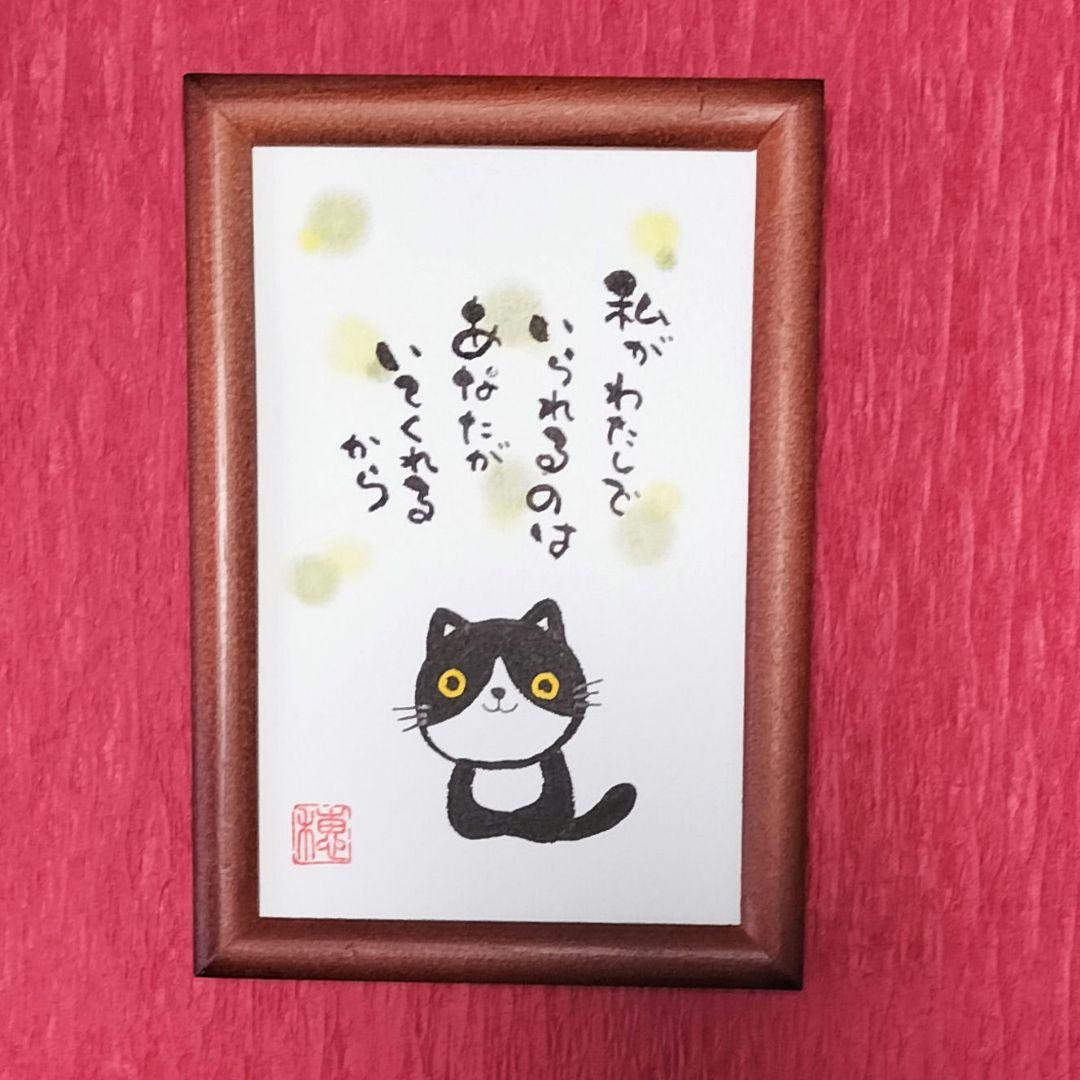 私がわたしで
いられるのは
あなたが
いてくれる
から
穂